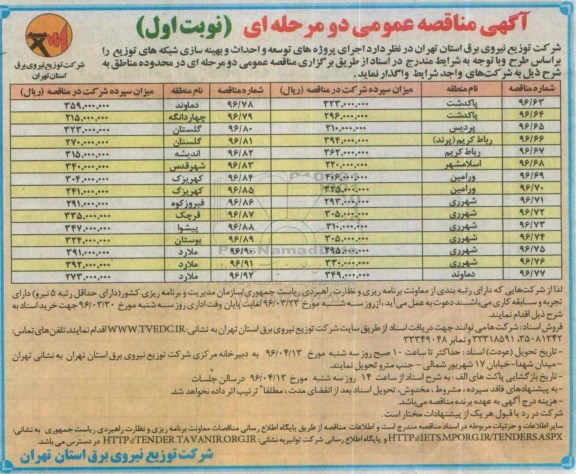 آگهی مناقصه عمومی دو مرحله ای (نوبت اول)
شرکت توزیع نیروی برق
استان تهران
شرکت توزیع نیروی برق استان تهران در نظر دارد اجرای پروژه های توسعه و احداث و بهینه سازی شبکه های توزیع را
براساس طرح وبا توجه به شرایط مندرج در اسناد از طریق برگزاری مناقصه عمومی دو مرحله ای در محدوده مناطق به
شرح ذیل به شرکت‌های واجد شرایط واگذار نماید.
شماره مناقصه نام منطقه میزان سپرده شرکت در مناقصه (ریال) شماره مناقصه نام منطقه میزان سپرده شرکت در مناقصه (ریال)
۹۶/۶۳ پاکدشت ۳۲۳.۰۰۰.۰۰۰ ۹۶/۷۸ دماوند ۳۵۹.۰۰۰.۰۰۰
۹۶/۶۴ پاکدشت ۲۹۶.۰۰۰.۰۰۰ ۹۶/۷۹ چهاردانگه ۲۱۵.۰۰۰.۰۰۰
۹۶/۶۵ پردیس ۲۱۰.۰۰۰.۰۰۰ ۹۶/۸۰ گلستان ۳۲۳.۰۰۰.۰۰۰
۹۶/۶۶ رباط کریم (پرند) ۳۹۴.۰۰۰.۰۰۰ ۹۶/۸۱ گلستان ۲۷۰.۰۰۰.۰۰۰
۹۶/۶۷ رباط کریم ۳۶۲.۰۰۰.۰۰۰ ۹۶/۸۲ اندیشه ۳۱۵.۰۰۰.۰۰۰
۹۶/۶۸ اسلامشهر ۲۲۰.۰۰۰.۰۰۰ ۹۶/۸۳ شهرقدس ۳۴۰.۰۰۰.۰۰۰
۹۶/۶۹ ورامین ۲۰۶.۰۰۰.۰۰۰ ۹۶/۸۴ کهریزک ۳۰۴.۰۰۰.۰۰۰
۹۶/۷۰ ورامین ۳۲۵.۰۰۰.۰۰۰ ۹۶/۸۵ کهریزک ۲۴۱.۰۰۰.۰۰۰
۹۶/۷۱ شهرری ۲۹۳.۰۰۰.۰۰۰ ۹۶/۸۶ فیروزکوه ۲۹۱.۰۰۰.۰۰۰
۹۶/۷۲ شهرری ۳۰۵.۰۰۰.۰۰۰ ۹۶/۸۷ قرچک ۳۳۵.۰۰۰.۰۰۰
۹۶/۷۳ شهرری ۳۱۰.۰۰۰.۰۰۰ ۹۶/۸۸ پیشوا ۳۴۷.۰۰۰.۰۰۰
۹۶/۷۴ شهرری ۳۰۵.۰۰۰.۰۰۰ ۹۶/۸۹ بوستان ۳۲۴.۰۰۰.۰۰۰
۹۶/۷۵ شهرری ۲۹۵.۰۰۰.۰۰۰ ۹۶/۹۰ ملارد ۳۹۱.۰۰۰.۰۰۰
۹۶/۷۶ شهرری ۳۳۰.۰۰۰.۰۰۰ ۹۶/۹۱ ملارد ۳۹۲.۰۰۰.۰۰۰
۹۶/۷۷ دماوند ۳۴۹.۰۰۰.۰۰۰ ۹۶/۹۲ ملارد ۲۷۳.۰۰۰.۰۰۰
لذا از شرکت‌هایی که دارای رتبه بندی از معاونت برنامه ریزی و نظارت راهبردی ریاست جمهوری/سازمان مدیریت و برنامه ریزی کشور(دارای حداقل رتبه ۵ نیرو) دارای
تجربه و سابقه کاری می‌باشند دعوت به عمل می‌آید ،ازروز سه شنبه مورخ ۹۶/۰۳/۲۳ لغایت پایان وقت اداری روز سه شنبه مورخ ۹۶/۰۳/۳۰ جهت خرید اسناد به
شرح ذیل اقدام نمایند.
فروش اسناد: شرکت‌ها می توانند جهت دریافت اسناد از طریق سایت شرکت توزیع نیروی برق استان تهران به نشانی: WWW.TVEDC.IR اقدام نمایند. تلفن‌های تماس:
۳۵۰۸۱۳۴۲، ۳۳۳۱۸۵۹۱ و نمابر ۳۳۳۴۹۰۴۸
- تاریخ تحویل (عودت) اسناد: حداکثر تا ساعت ۱۰ صبح روز سه شنبه مورخ ۹۶/۰۴/۱۳ به دبیرخانه مرکزی شرکت توزیع نیروی برق استان تهران به نشانی تهران
- میدان شهدا-خیابان ۱۷ شهریور شمالی - جنب مترو تحویل نمایند.
- تاریخ بازگشایی پاکت های الف: به شرح اسناد از ساعت ۱۴ روز سه شنبه مورخ ۹۶/۰۴/۱۳ درسالن جلسات
- به پیشنهادهای فاقد سپرده، مشروط، مخدوش، تحویل اسناد بعد از انقضای مدت، مطلقاً ترتیب اثر داده نخواهد شد.
- هزینه درج آگهی به عهده برنده مناقصه می‌باشد.
شرکت در رد یا قبول هر یک از پیشنهادات مختار است.
سایر اطلاعات و جزئیات مربوطه در اسناد مناقصه مندرج است و اطلاعات مناقصه از طریق پایگاه اطلاع رسانی مناقصات معاونت برنامه ریزی و نظارت راهبردی ریاست جمهوری به نشانی:
HTTP://IETS.MPORG.IR/TENDERS.ASPX و پایگاه اطلاع رسانی شرکت توانیر به نشانی: HTTP://TENDER.TAVANIR.ORG.IR در دسترس می باشد.
شرکت توزیع نیروی برق استان تهران